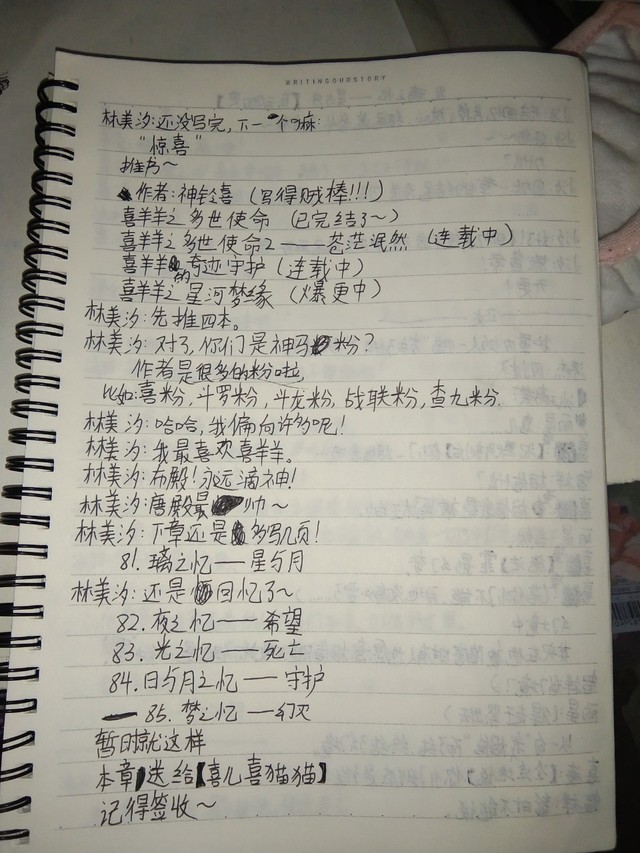 WRITINGOURSTORY
林美汐:还没写完,下一个嘛:
“惊喜”
推书~
作者:神铃喜 (写得贼棒!!!)
喜羊羊之多世使命 (已完结了~)
喜羊羊之多世使命2——苍茫泯然 (连载中)
喜羊羊的奇迹守护 (连载中)
喜羊羊之星河梦缘 (爆更中)
林美汐:先推四本。
林美汐:对了,你们是神马粉?
作者是很多的粉啦,
比如:喜粉,斗罗粉,斗龙粉,战联粉,查九粉.
林美汐:哈哈,我偏向许多呢!
林美汐:我最喜欢喜羊羊。
林美汐:布殿!永远滴神!
林美汐:唐殿最帅~
林美汐:下章还是多写几页!
81.璃之忆——星与月
林美汐:还是回忆了~
82.夜之忆——希望
83.光之忆——死亡
84.日与月之忆——守护
85.梦之忆——幻灭
暂时就这样
本章送给【喜儿喜猫猫】
记得签收~